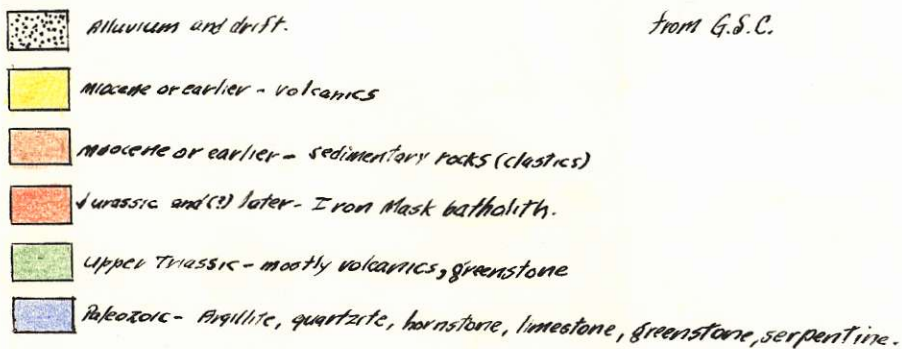 Alluvium and drift.
from G.S.C.
Miocene or earlier - volcanics
Miocene or earlier - sedimentary rocks (clastics)
Jurassic and (?) later - Iron Mask batholith.
Upper Triassic - mostly volcanics, greenstone
Paleozoic - Argillite, quartzite, hornstone, limestone, greenstone, serpentine.